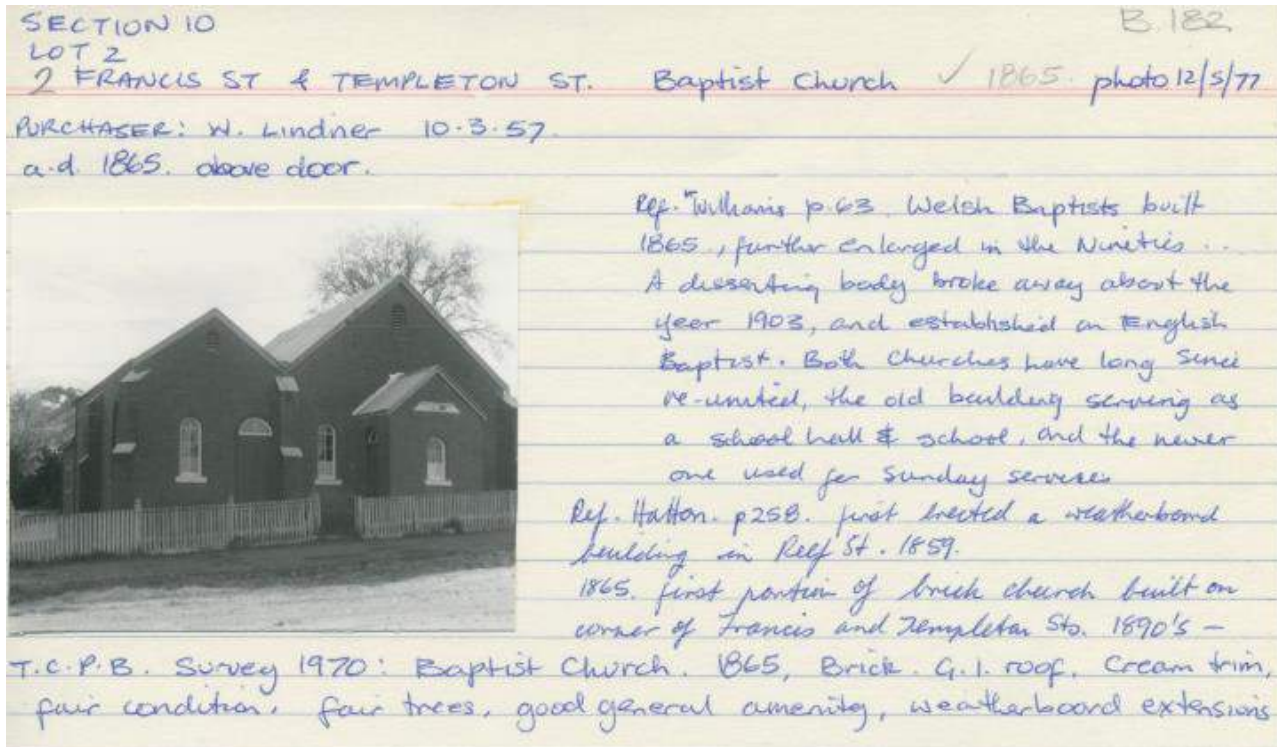 SECTION 10
B.182
LOT 2
2 FRANCIS ST & TEMPLETON ST. Baptist Church ✓ 1865. photo 12/5/77
PURCHASER: W. Lindner 10.3.57.
a.d. 1865. above door.
Ref. "Williams p.63. Welsh Baptists built
1865., further enlarged in the Nineties ..
A dissenting body broke away about the
year 1903, and established an English
Baptist. Both Churches have long since
re-united, the old building serving as
a school hall & school, and the newer
one used for Sunday services
Ref. Hatton. p258. first erected a weatherboard
building in Relf St. 1859.
1865. first portion of brick church built on
corner of Francis and Templeton Sts. 1890's –
T.C.P.B. Survey 1970: Baptist Church. 1865, Brick. G.I. roof. Cream trim,
fair condition. fair trees, good general amenity, weatherboard extensions